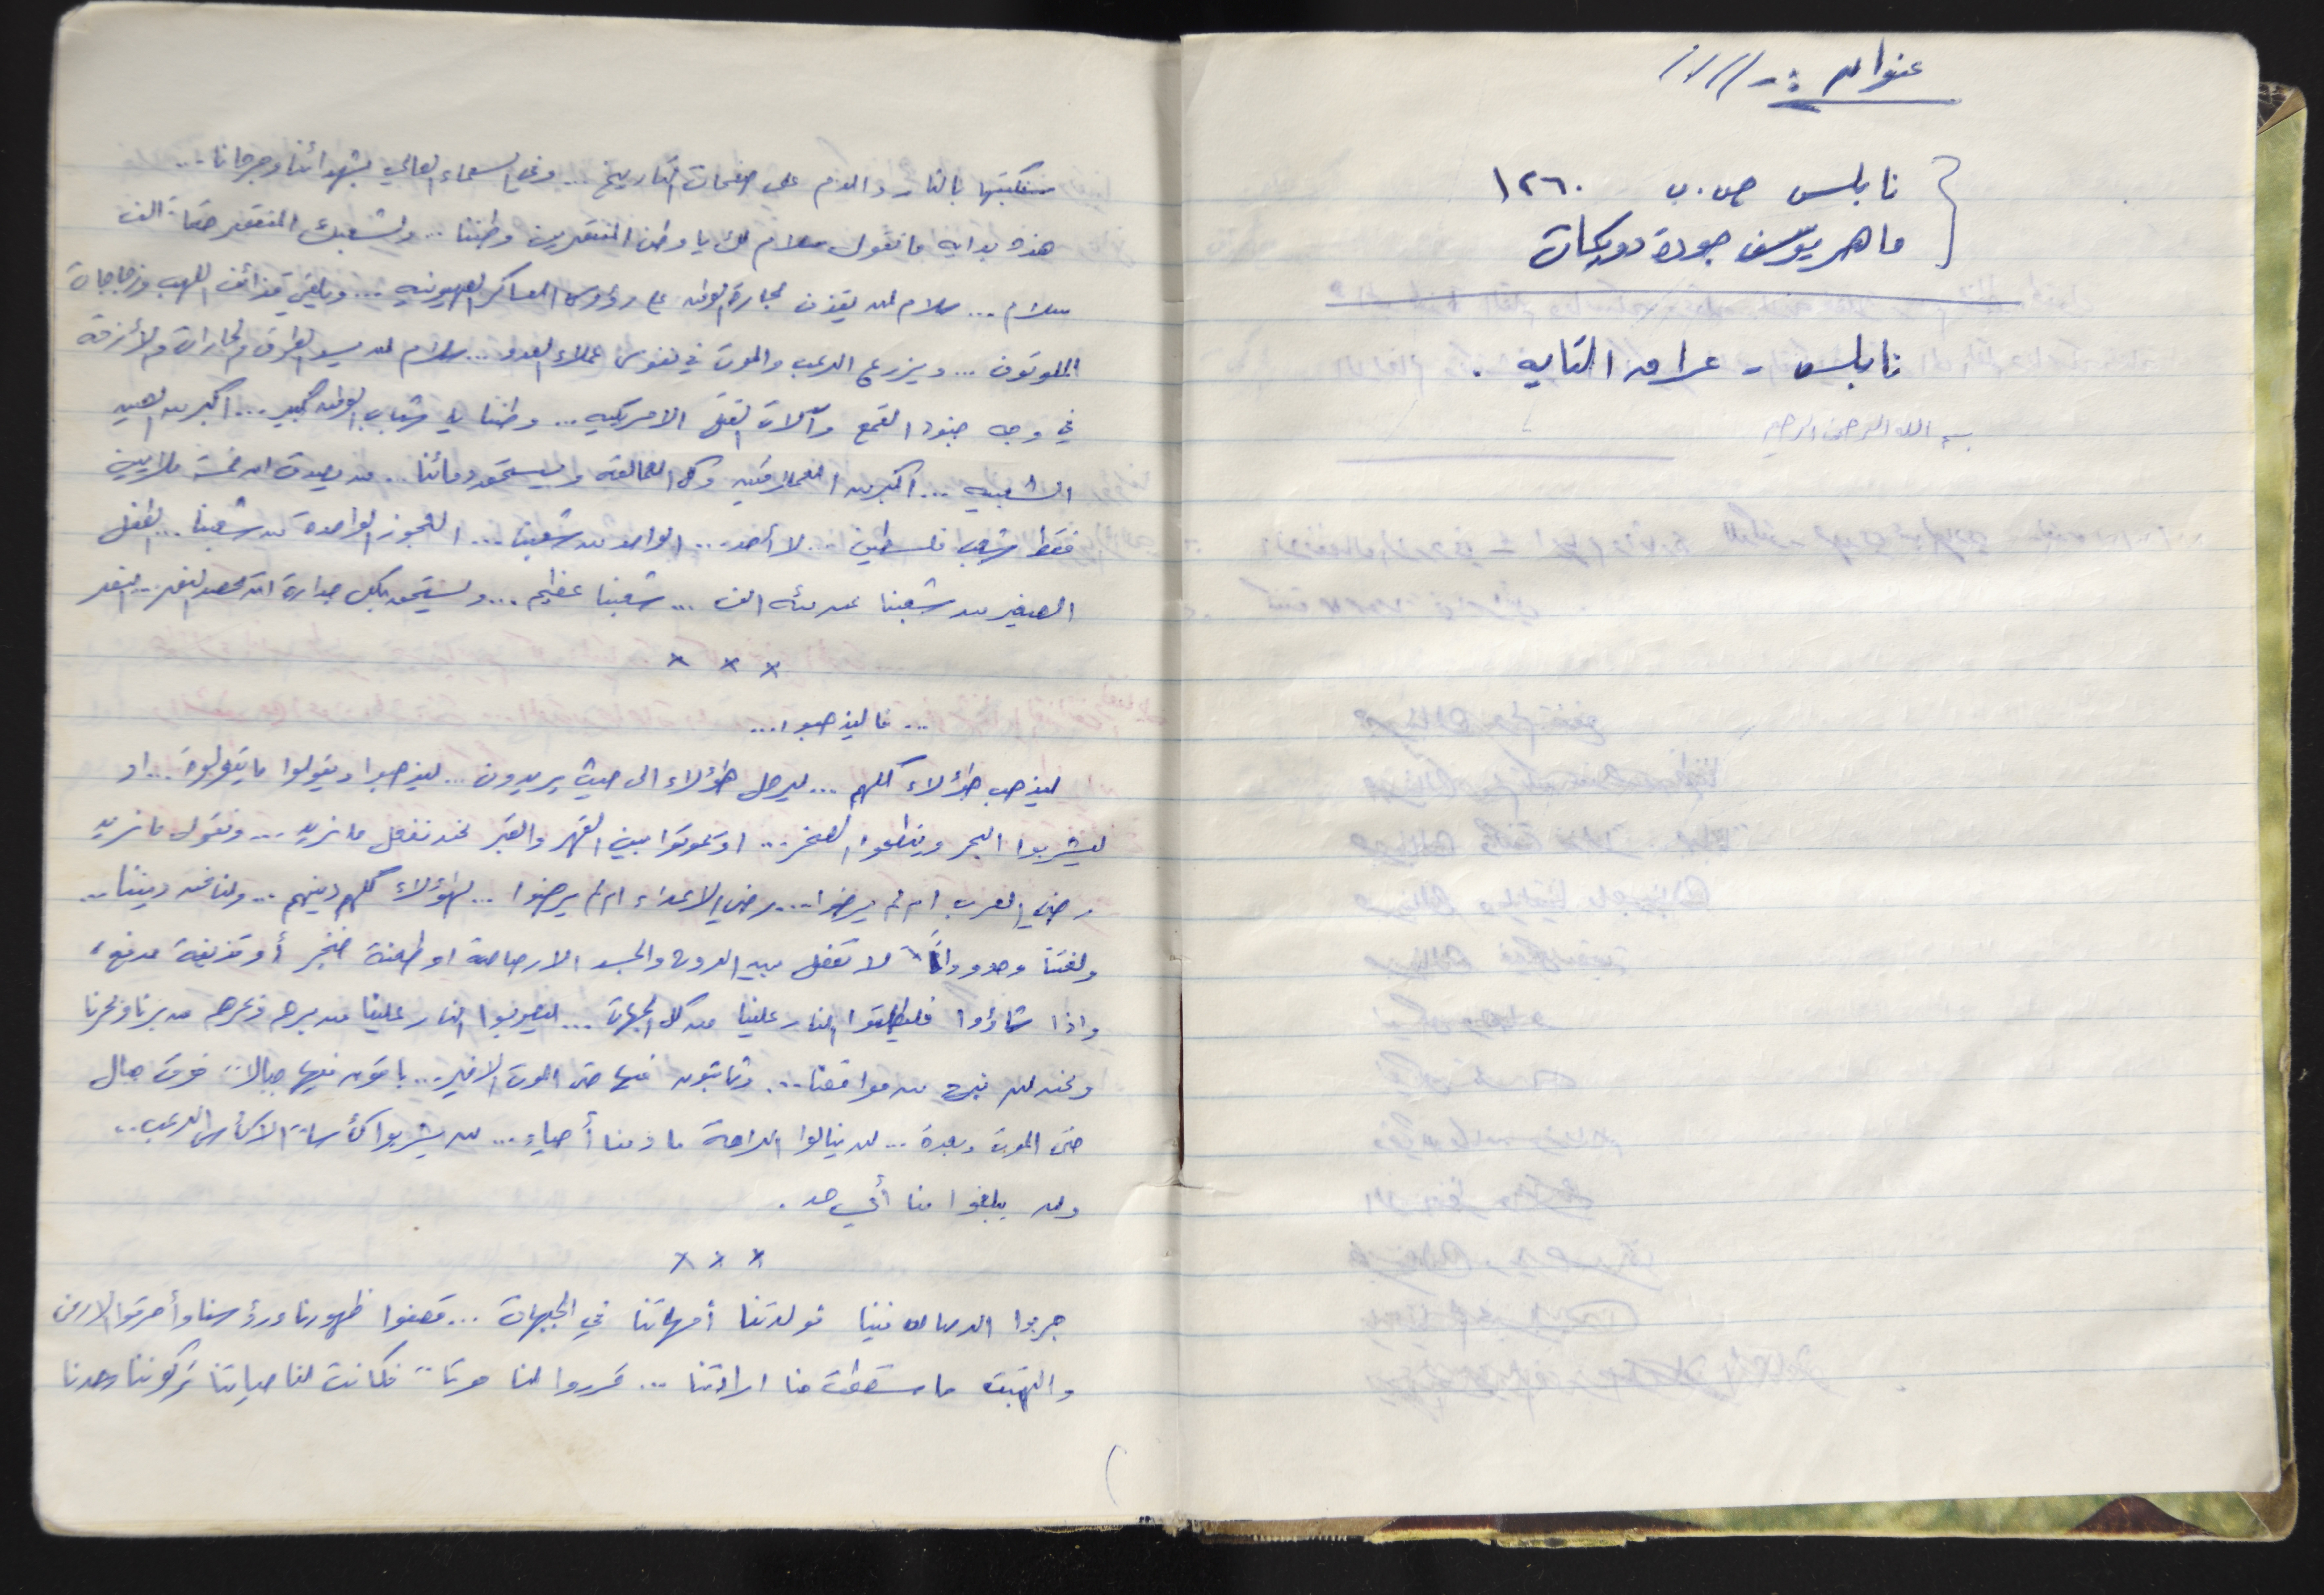 عنوان :- / / / /
نابلس ص.ب ١٢٦٠
ماهر يوسف جودة دويكات
نابلس - عراق التايه .
بسم الله الرحمن الرحيم
سنكتبها بالنار والدم على صفحات التاريخ ... وفي السماء العالي بشهدائنا وجرحانا ...
هذه بداية ما نقول سلام لك يا وطن المنتصرين وطننا .. ولشعبك المنتصر حقاً الف
سلام ... سلام لمن يقذف حجارة الوطن على رؤوس العساكر الصهيونيه ... ويلقي قذائف اللهب وزجاجات
الملوتوف ... ويزرع الرعب والموت في نفوس عملاء العدو ... سلام لمن يسد الطرق والحارات والأزقة
في وجه جنود القمع وآلات القتل الامريكيه ... وطننا يا شباب الوطن كبير ... اكبر من الصين
الشعبيه ... اكبر من العملاقين وكل العمالقه ويستحق دمائنا .. من يصدق ان خمسة ملايين
فقط شعب فلسطين ... لا أحد ... الواحد من شعبنا ... العجوز الواحدة من شعبنا ... الطفل
الصغير من شعبنا عن مئه الف ... شعبنا عظيم ... ويستحق بكل جدارة ان يحصد النصر .. النصر
× × ×
... فاليذهبوا ...
ليذهب هؤلاء كلهم ... ليرحل هؤلاء الى حيث يريدون ... ليذهبوا ويقولوا ما يقولوه ... او
ليشربوا البحر وينطحوا الصخر ... او يموتوا بين القهر والقبر نحن نفعل ما نريد ... ونقول ما نريد
رضي العرب ام لم يرضوا ... رضي الاعداء ام لم يرضوا ... لهؤلاء كلهم دينهم ... ولنا نحن ديننا ...
ولغتنا وحدودنا لا تفصل بين الروح والجسد الا رصاصة او طعنة خنجر أو قذيفة مدفع ،
واذا شاؤوا فليطلقوا النار علينا من كل الجهات ... ليصوبوا النار علينا من برهم وبحرهم من برنا وبحرنا
ونحن لن نبرح من مواقعنا ... وثابتون فيها حتى الموت الاخير ... باقون فيها جبالاً فوق جبال
حتى الموت وبعده ... لن ينالوا الراحة ما دمنا أحياء ... لن يشربوا كأساً الا كأس الرعب ..
ولن يبلغوا منا أي حد .
× × ×
جربوا الرصاص فينا فولدتنا أمهاتنا في الجبهات ... قصفوا ظهورنا ورؤوسنا وأحرقوا الارض
والتهبت ما سقطت منا ارادتنا ... قرروا لنا موتاً فكانت لنا حياتنا تركوننا وحدنا